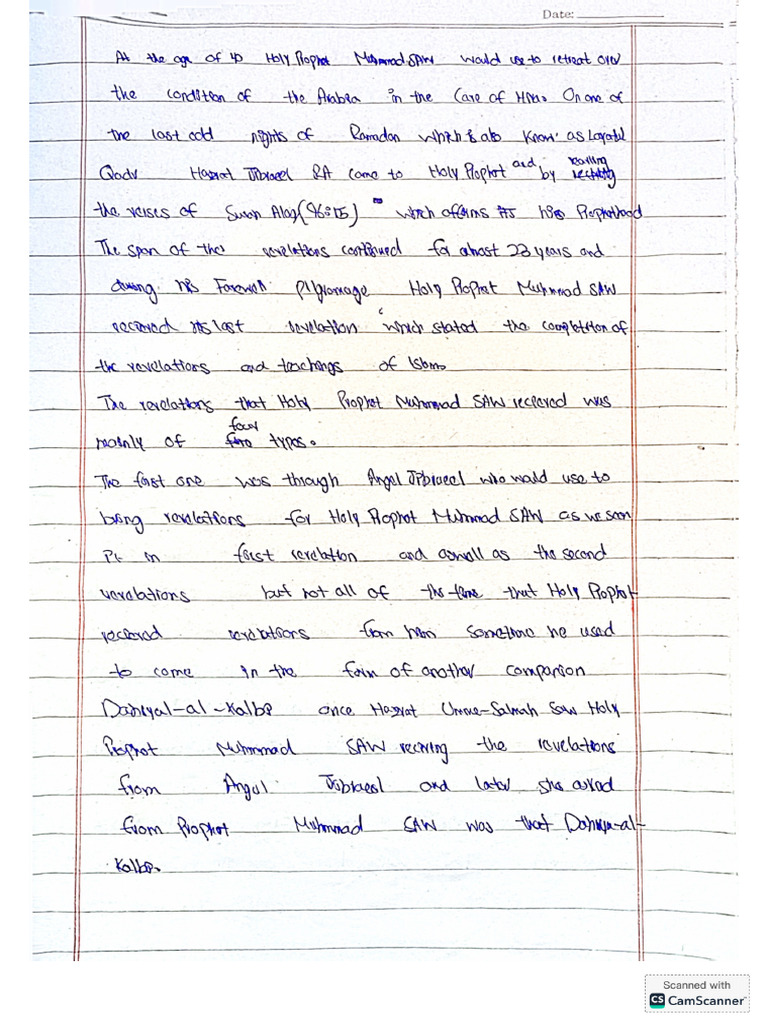 Date:
At the age of 40 Holy Prophet Muhmmad SAW would use to retreat over
the condition of the Arabea in the Cave of Hira. On one of
the last odd nights of Ramadan which is also know as Layatul
Qadr Hazrat Jibraeel RA came to Holy Prophet and by reciting
the verses of Surah Alaq (96:1-5) which affirms his Prophethood
The span of the revelations continued for almost 23 years and
during his Farewell pilgramage Holy Prophet Muhmmad SAW
recieved his last revelation which stated the completion of
the revelations and teachings of Islam.
The revelations that Holy Prophet Muhmmad SAW recieved was
mainly of four types.
The first one was through Angel Jibraeel who would use to
bring revelations for Holy Prophet Muhmmad SAW as we seen
it in first revelation and aswell as the second
revelations but not all of the time that Holy Prophet
recieved revelations from him sometime he used
to come in the form of another companion
Dahiyal-al-Kalbi once Hazrat Umme-Salmah saw Holy
Prophet Muhmmad SAW reciving the revelations
from Angel Jibraeel and later she asked
from Prophet Muhmmad SAW was that Dahiya-al-
Kalbi.
Scanned with
CS CamScanner